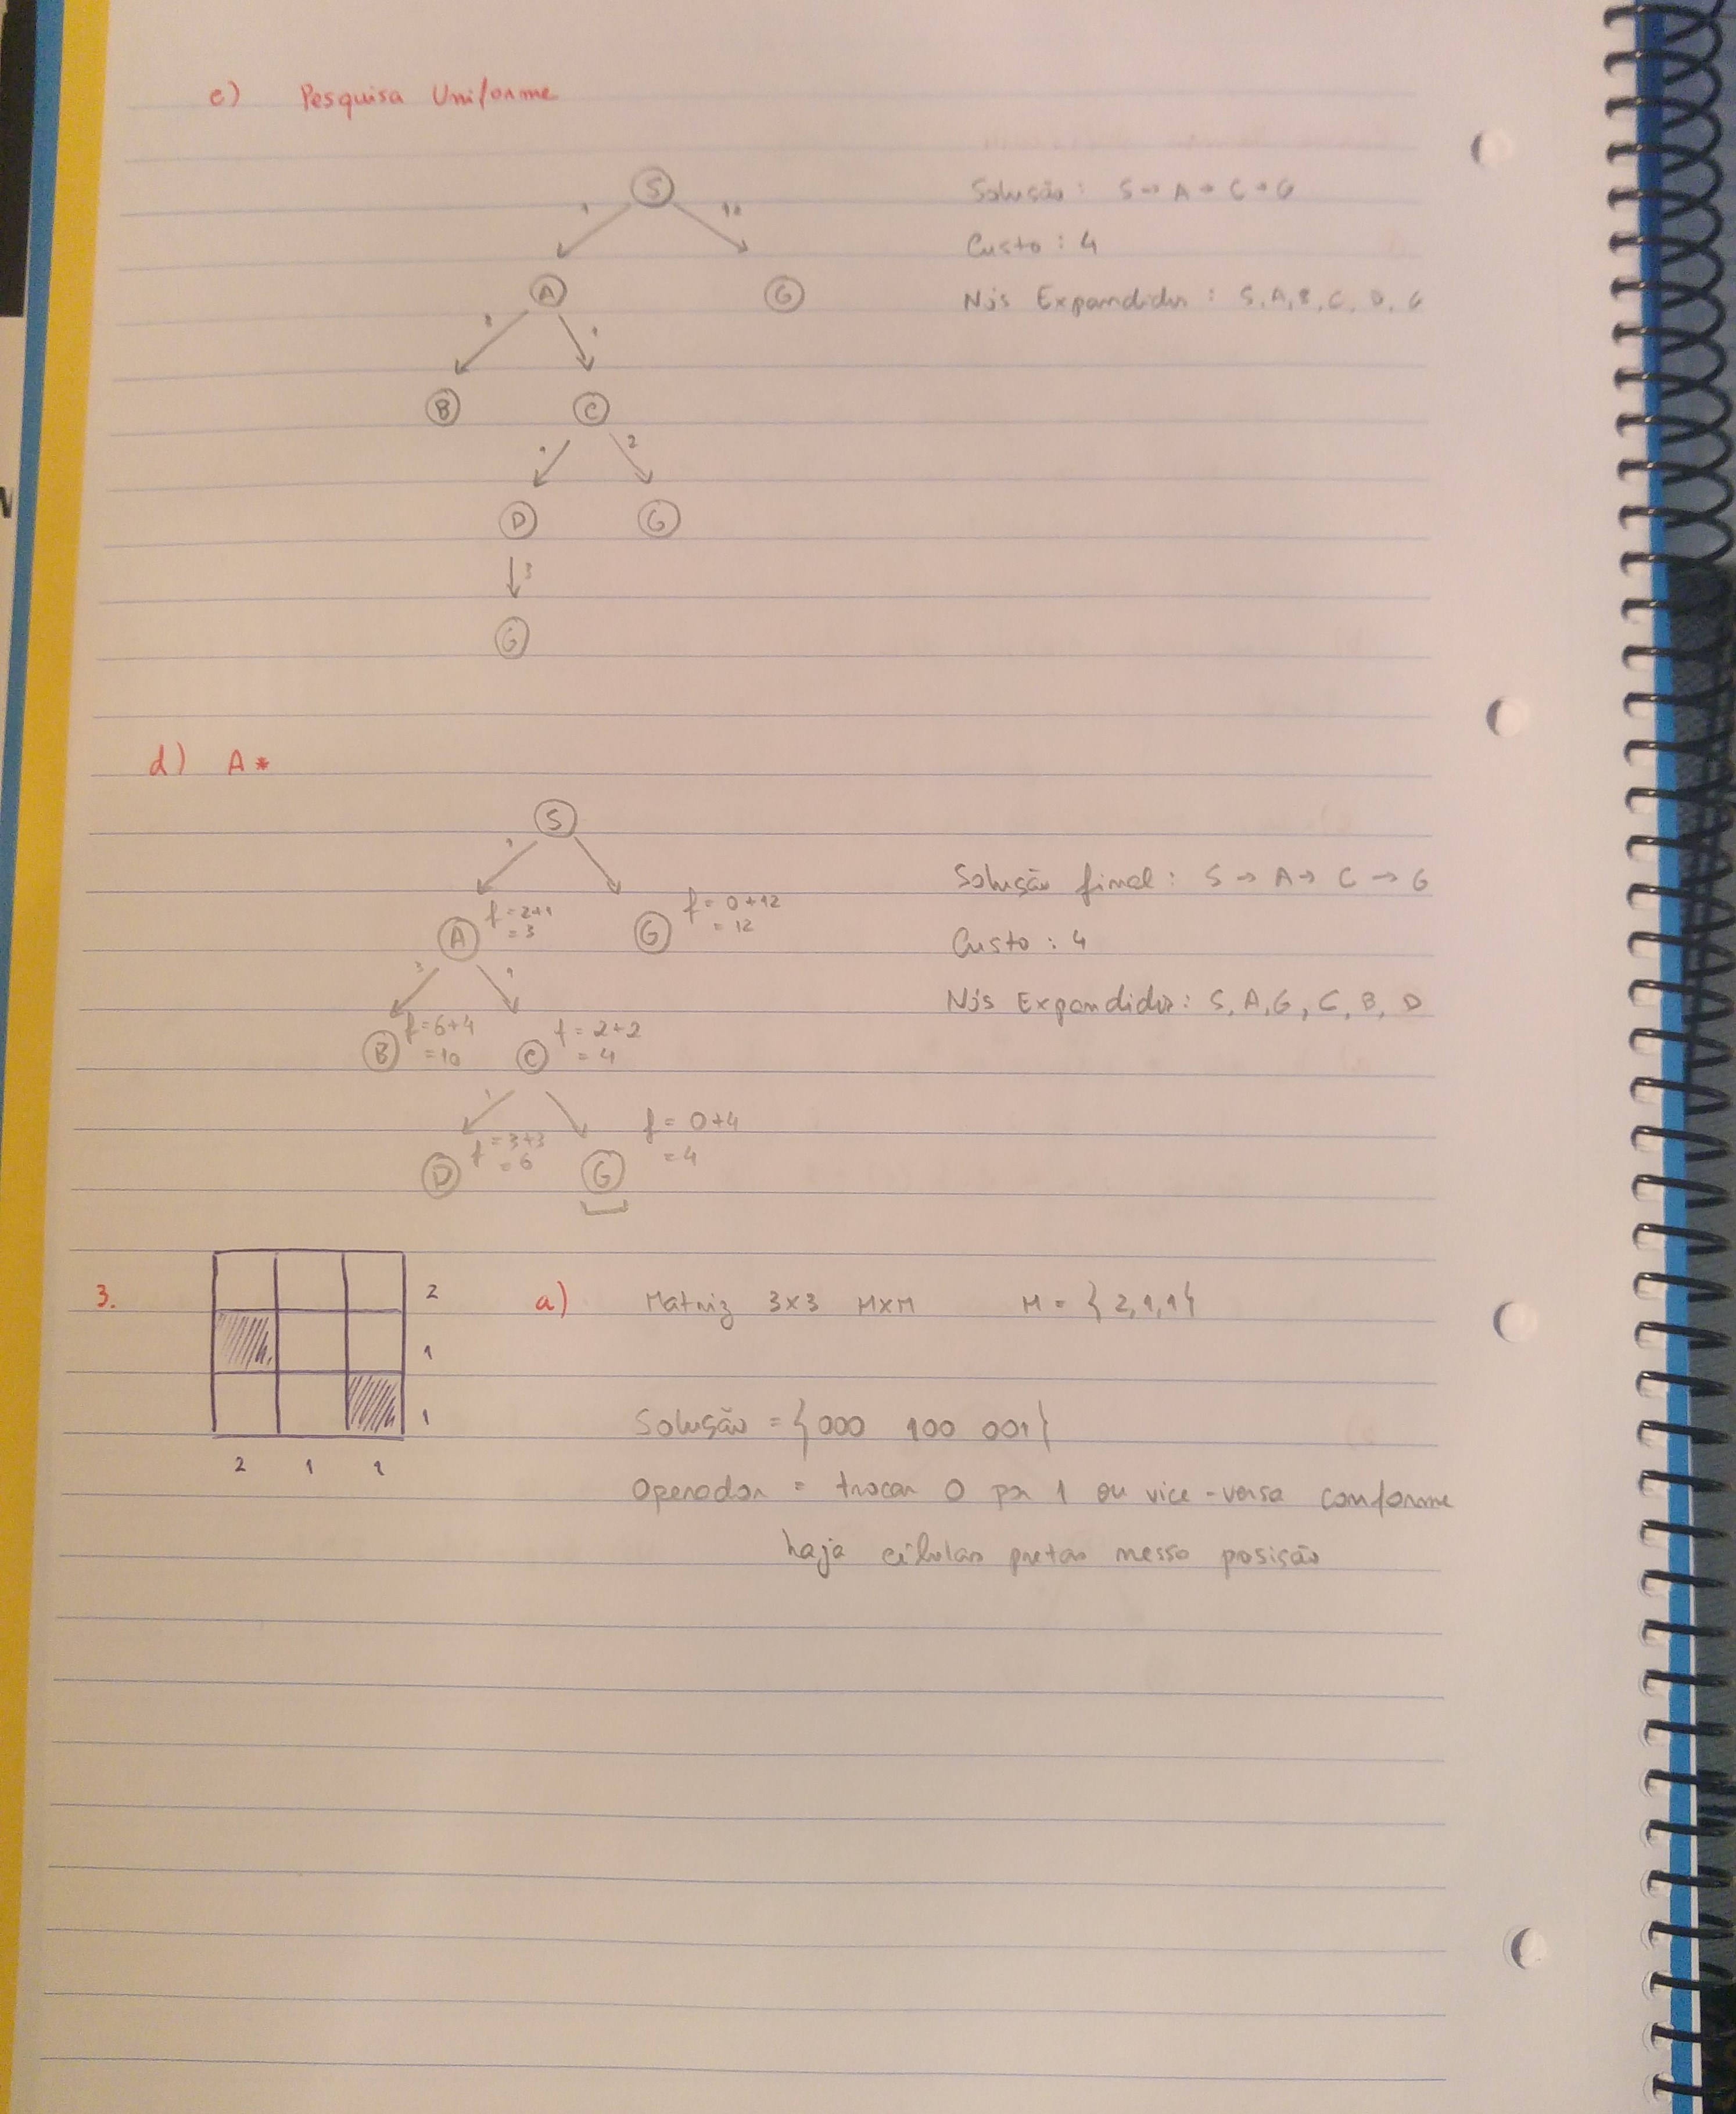 c) Pesquisa Uniforme
S
1 12
A G
3 1
B C
1 2
D G
3
G
Solução: S → A → C → G
Custo: 4
Nós Expandidos: S, A, B, C, D, G
d) A*
S
1
A f = 2+1 = 3
G f = 0+12 = 12
3 1
B f = 6+4 = 10
C f = 2+2 = 4
1
D f = 3+3 = 6
G f = 0+4 = 4
Solução final: S → A → C → G
Custo: 4
Nós Expandidos: S, A, G, C, B, D
3.
2
1
1
2 1 1
a) Matriz 3x3 MxM M = {2,1,1}
Solução = {000 100 001}
Operador = trocar 0 por 1 ou vice-versa conforme
haja células pretas nessa posição